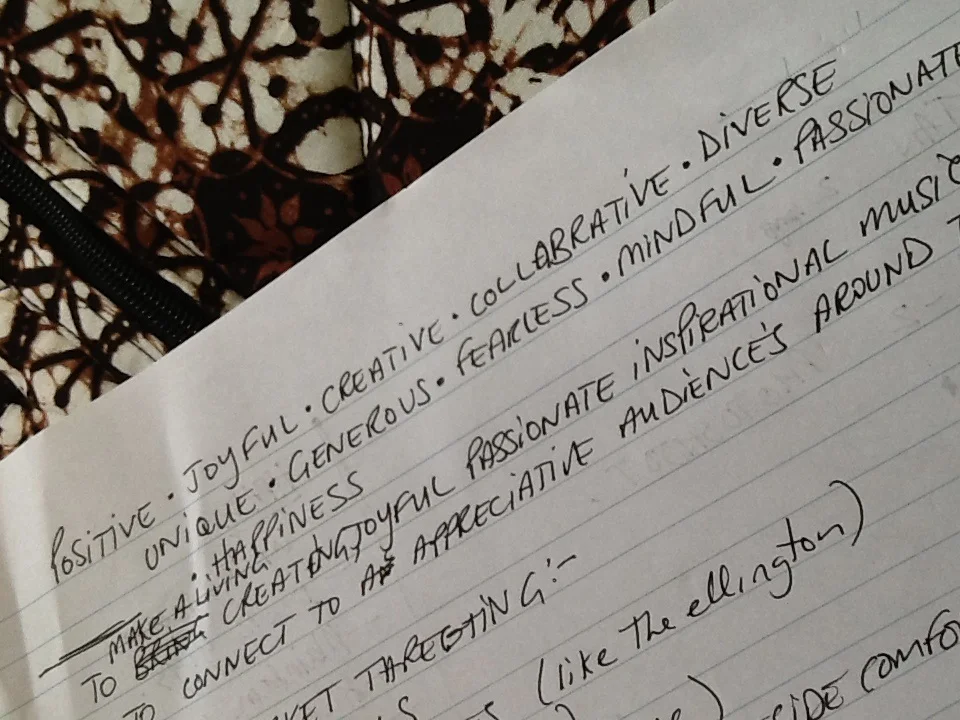 POSITIVE · JOYFUL · CREATIVE · COLLABRATIVE · DIVERSE
UNIQUE · GENEROUS · FEARLESS · MINDFUL · PASSIONATE
· HAPPINESS
MAKE A LIVING
TO CREATING JOYFUL PASSIONATE INSPIRATIONAL MUSIC
TO CONNECT TO AN APPRECIATIVE AUDIENCE'S AROUND
TAREGTING:-
(like The ellington)